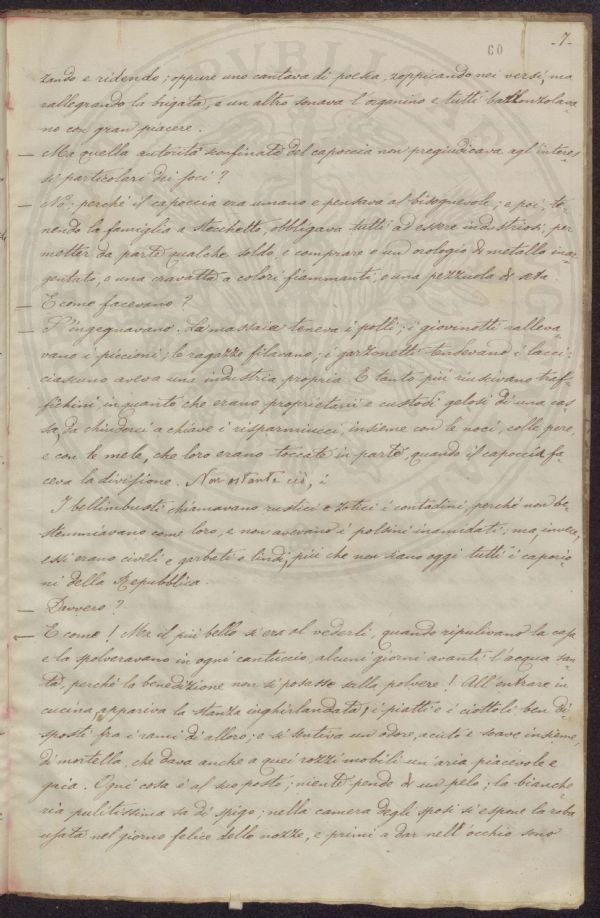 60
-7-
zando e ridendo; oppure uno cantava di poesia, zoppicando nei versi, ma
rallegrando la brigata, e un altro sonava l'organino e tutti ballonzolava-
no con gran piacere.
— Ma quella autorità sconfinata del capoccia non pregiudicava agl'interes-
si particolari dei soci?
— No: perché il capoccia era umano e pensava al bisognevole; e poi, te-
nendo la famiglia a stecchetto, obbligava tutti ad essere industriosi, per
metter da parte qualche soldo, e comprare o un orologio di metallo inar-
gentato, o una cravatta a colori fiammanti, o una pezzuola di seta.
— E come facevano?
— S'ingegnavano. La massaia teneva i polli; i giovinotti rileva-
vano i piccioni; le ragazze filavano; i garzonetti tendevano i lacci:
ciascuno aveva una industria propria. E tanto più riuscivano traf-
fichini in quanto che erano proprietarii e custodi gelosi di una cas-
sa, da chiuderci a chiave i risparmiucci insieme con le noci, colle pere,
e con le mele, che loro erano toccate in parte, quando il capoccia fa-
ceva la divisione. Non ostante ciò, i
I bellimbusti chiamavano rustici e zotici i contadini, perché non be-
stemmiavano come loro, e non avevano i polsini inamidati; ma, invece,
essi erano civili e garbati e lindi, più che non siano oggi tutti i caporio-
ni della Repubblica.
— Davvero?
— E come! Ma il più bello si era al vederli, quando ripulivano la casa
e la spolveravano in ogni cantuccio, alcuni giorni avanti l'acqua san-
ta, perché la benedizione non si posasse sulla polvere! All'entrare in
cucina, appariva la stanza inghirlandata, i piatti e i ciottoli ben di-
sposti fra i rami di alloro; e si sentiva un odore, acuto e soave insieme,
di mortella, che dava anche a quei rozzi mobili un'aria piacevole e
gaia. Ogni cosa è al suo posto; niente pende di un pelo; la bianche-
ria pulitissima sa di spigo; nella camera degli sposi si espone la roba
usata nel giorno felice delle nozze, e primi a dar nell'occhio sono